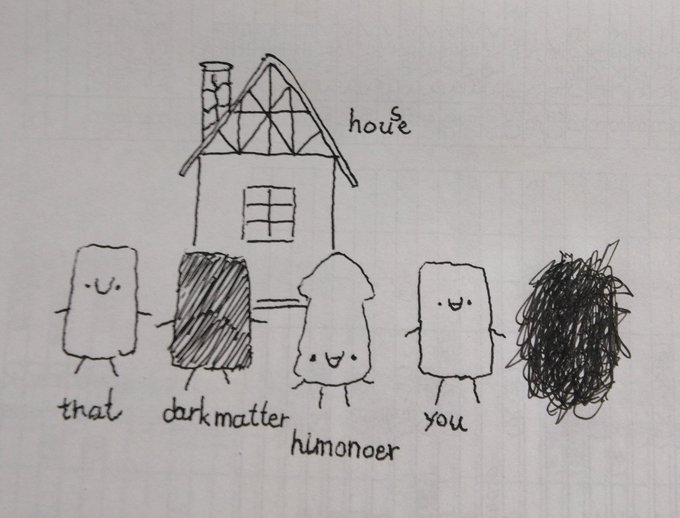 house
that
darkmatter
himonoer
you